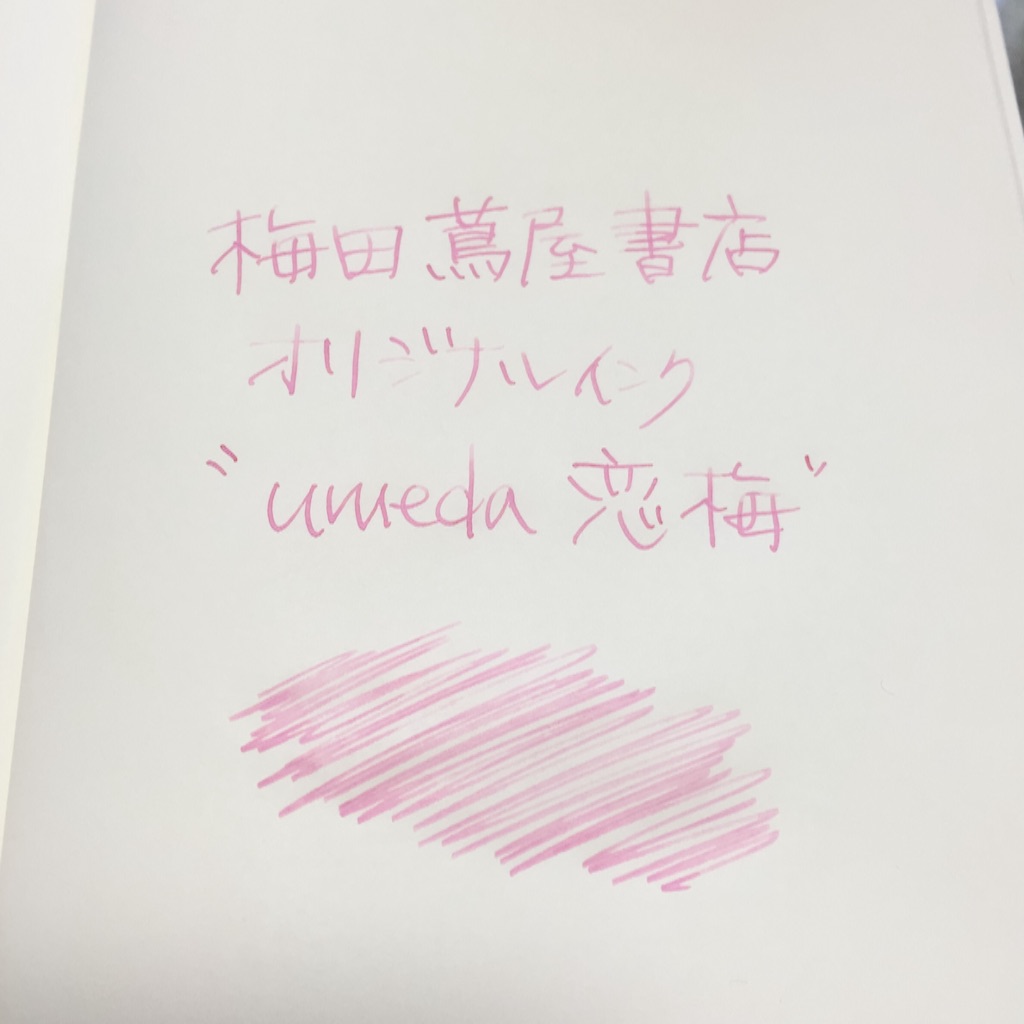 梅田蔦屋書店
オリジナルインク
"umeda 恋梅"